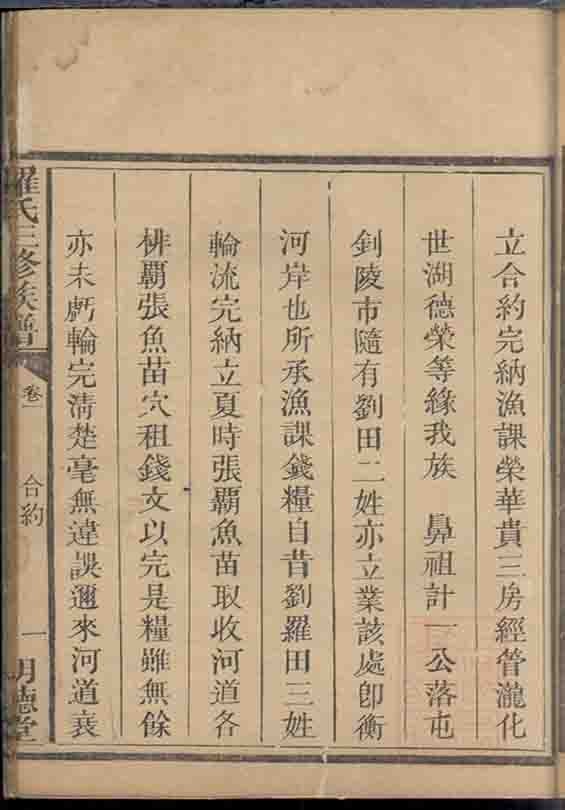 立合約完納漁課榮華貴三房經管瀧化
世湖德榮等緣我族 鼻祖計一公落屯
釗陵市隨有劉田二姓亦立業該處卽衡
河岸也所承漁課錢糧自昔劉羅田三姓
輪流完納立夏時張覇魚苗取收河道各
棑覇張魚苗穴租錢文以完是糧雖無餘
亦未虧輪完淸楚毫無違誤邇來河道衰
羅氏三修族譜 卷一 合約 一 明德堂